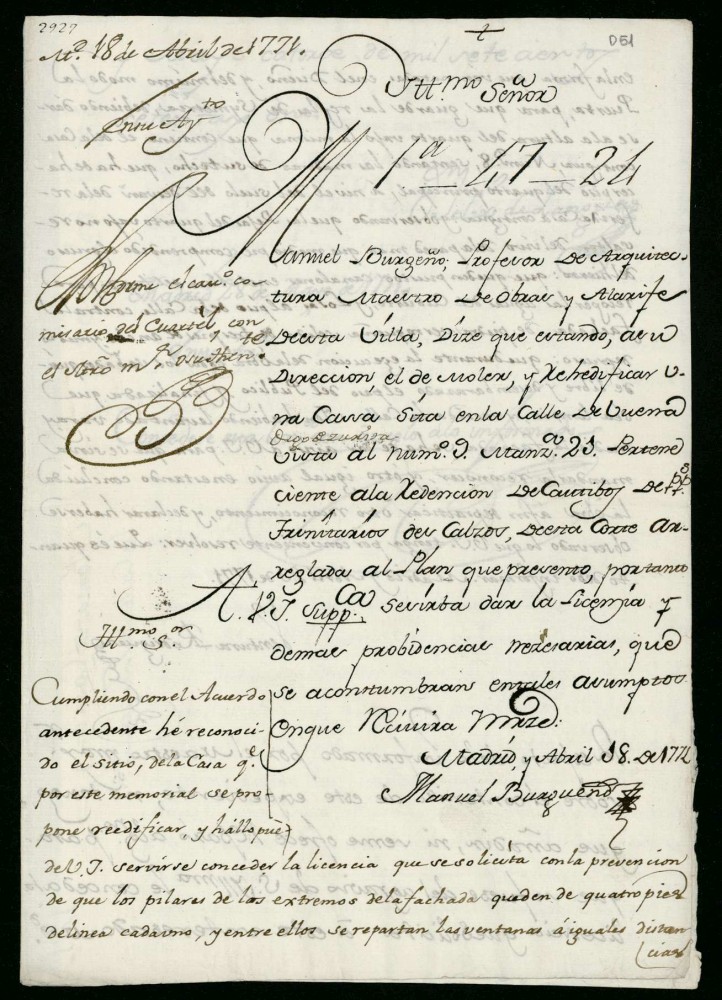 2929
D51
M.d 18 de Abril de 1771.
+
Ill.mo Señor
En su Ay.to
1.a - 47 - 24
Manuel Burgeño, Profesor De Arquitec-
tura Maestro De Obras y Alarife
Deesta Villa, Dize que estando, a su
Direccion el de Moler, y Rehedificar U-
na Cassa Sita en la Calle De buena
Vista al num.o 9. Manz.a 21. Pertene
ciente ala Redencion De Cautibos De PP.s
Trinitarios des Calzos, Deesta Corte Ar-
reglada al Plan que presento, por tanto
A. V.S.I. Supp.ca se sirba dar la Licenzia y
demas probidencias nezesarias, que
se acostumbran en tales asumptos
En que Recivira Mrzd:
Madrid, y Abril 18. De 1771
Manuel Burgueño
Informe el cav.o co-
misario del Cuartel, con
el Archro m.r y su then.te
Ill.mo S.or
Cumpliendo con el Acuerdo
antecedente hé reconoci-
do el sitio, dela Casa q.e
por este memorial se pro-
pone reedificar, y hállo pue-
de V.I. servirse conceder la licencia que se solicita con la prevencion
de que los pilares de los extremos dela fachada queden de quatro pies
de linea cada uno, y entre ellos se repartan las ventanas á iguales distan
cias